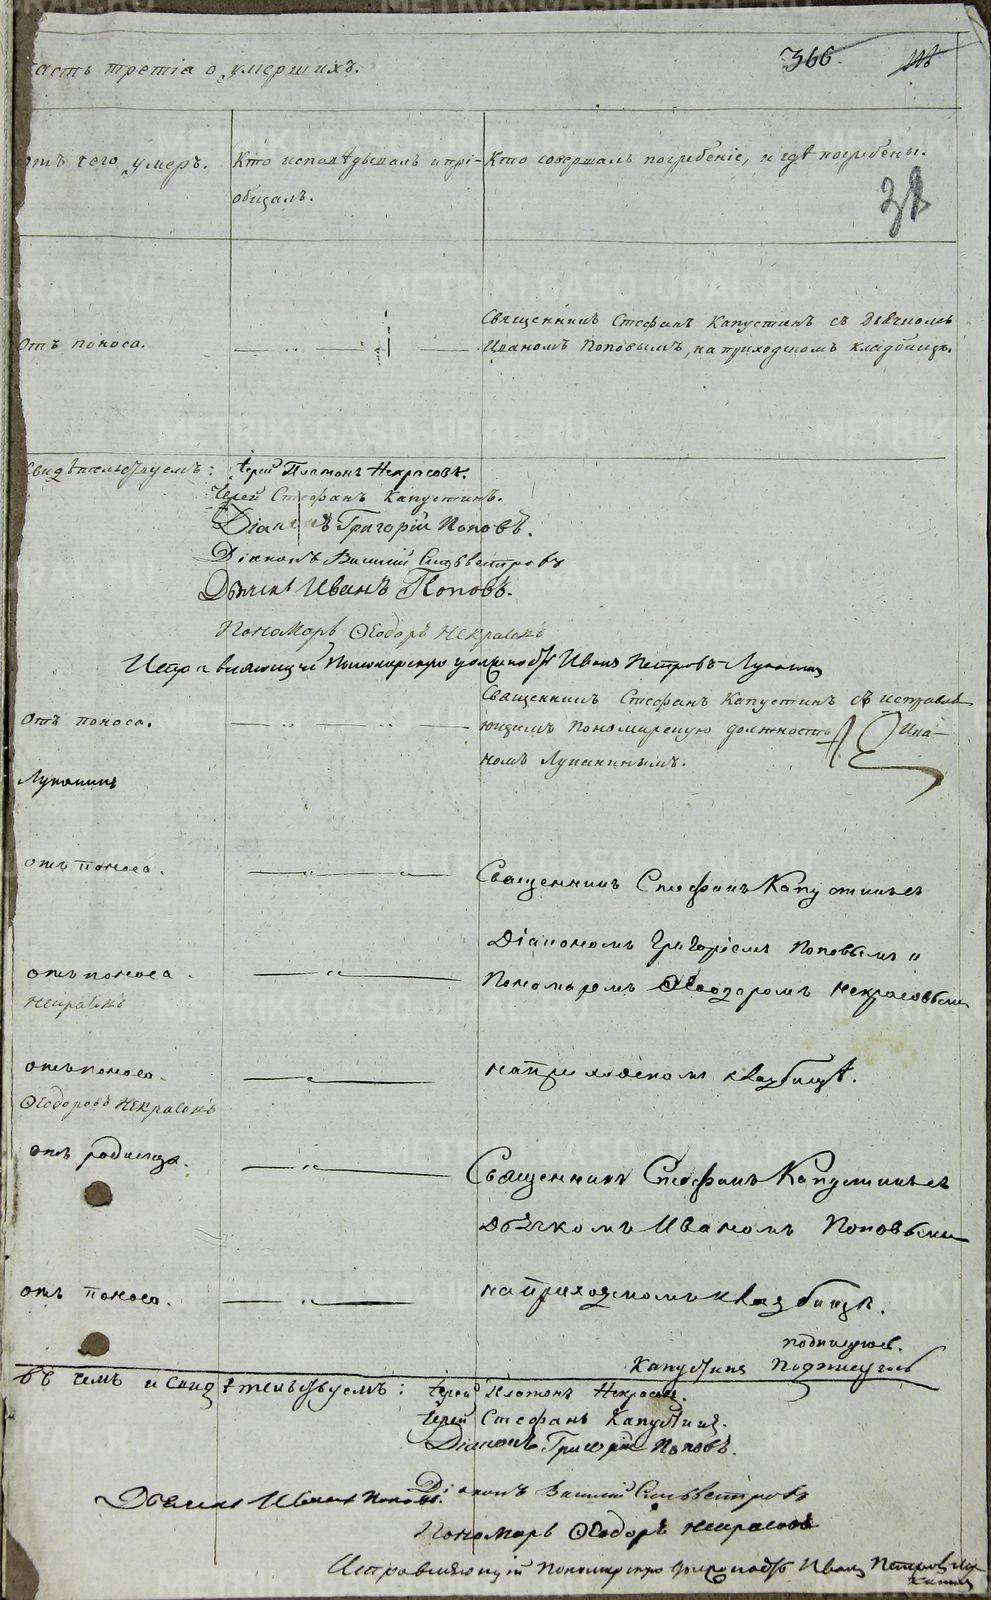 часть третіа о умершихъ.
366.
отъ чего умеръ.
Кто исповѣдывалъ и прі-
общалъ.
Кто совершалъ погребеніе, и гдѣ погребены.
32
отъ поноса.
Священникъ Стефанъ Капустинъ съ Дьячкомъ
Иваномъ Поповымъ, на приходскомъ кладбищѣ.
свидѣтельствуемъ: іерей Платонъ Некрасовъ.
іерей Стефанъ Капустинъ.
Діаконъ Григорій Поповъ.
Діаконъ Василій Сильвестровъ
Дьячекъ Иванъ Поповъ.
Пономарь Ѳеодоръ Некрасовъ
Исправляющій Пономарскую должность Иванъ Петровъ Лукининъ
отъ поноса.
Священникъ Стефанъ Капустинъ съ исправля-
ющимъ Пономарскую должность Ива-
номъ Лукининымъ.
Лукининъ
отъ поноса.
Священникъ Стефанъ Капустинъ съ
Діакономъ Григоріемъ Поповымъ и
отъ поноса.
Некрасовъ
Пономаремъ Ѳеодоромъ Некрасовымъ
отъ поноса.
на приходскомъ кладбищѣ.
Ѳеодоръ Некрасовъ
отъ родимца.
Священникъ Стефанъ Капустинъ съ
Дьячкомъ Иваномъ Поповымъ
отъ поноса.
на приходскомъ кладбищѣ.
Капустинъ
въ чемъ и свидѣтельствуемъ: іерей Платонъ Некрасовъ.
іерей Стефанъ Капустинъ.
Діаконъ Григорій Поповъ.
Діаконъ Василій Сильвестровъ
Дьячекъ Иванъ Поповъ.
Пономарь Ѳеодоръ Некрасовъ
Исправляющій Пономарскую должность Иванъ Петровъ Лу-
кининъ
METRIKI.GASO-URAL.RU